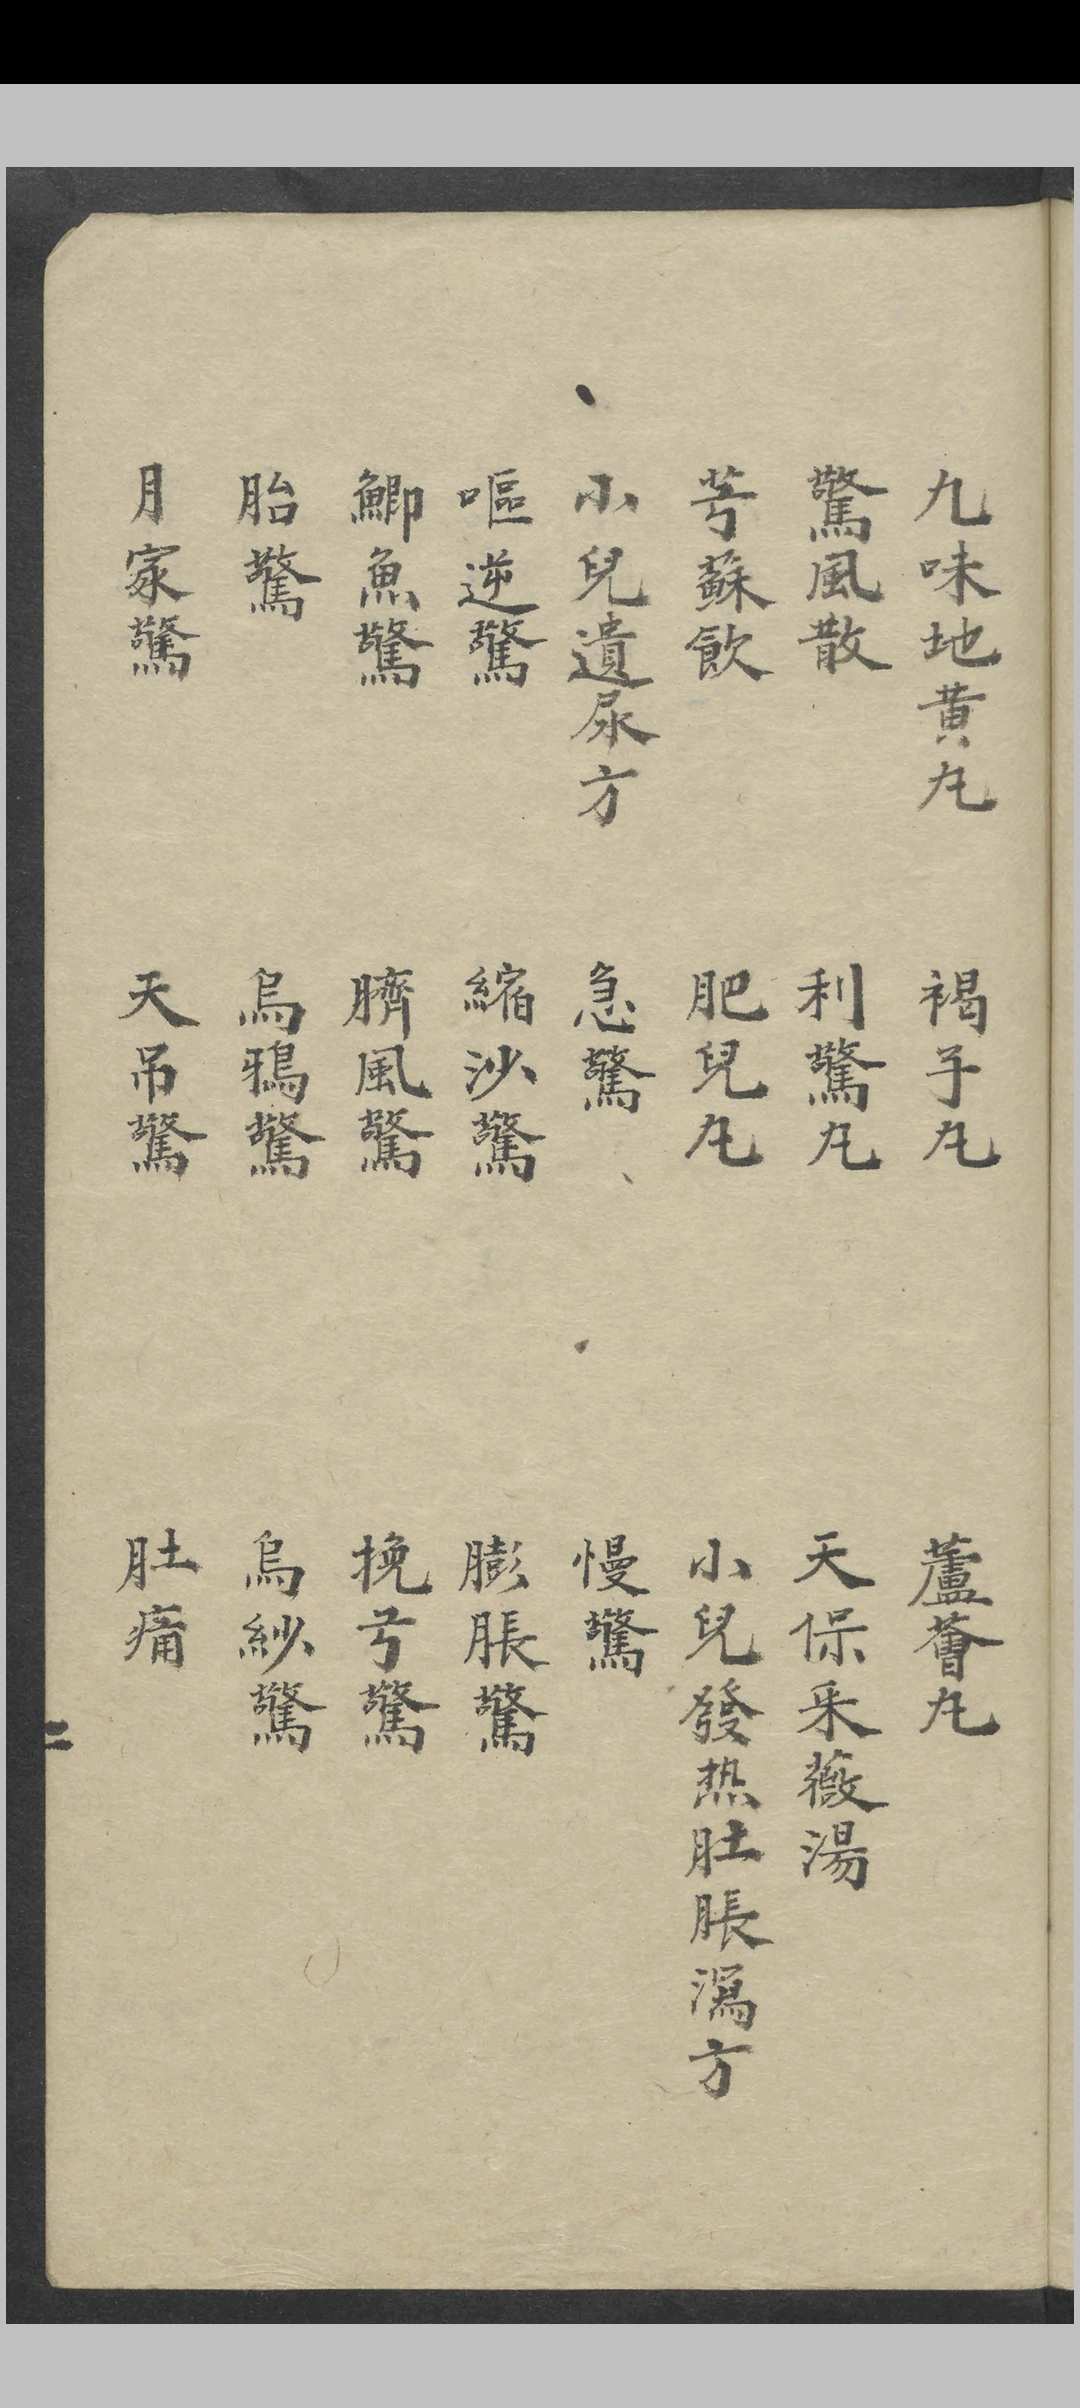 九味地黃丸　褐子丸　蘆薈丸
驚風散　利驚丸　天保采薇湯
芎蘇飲　肥兒丸　小兒發热肚脹瀉方
小兒遺尿方　急驚　慢驚
嘔逆驚　縮沙驚　膨脹驚
鯽魚驚　臍風驚　挽弓驚
胎驚　烏鴉驚　烏紗驚
月家驚　天吊驚　肚痛
二